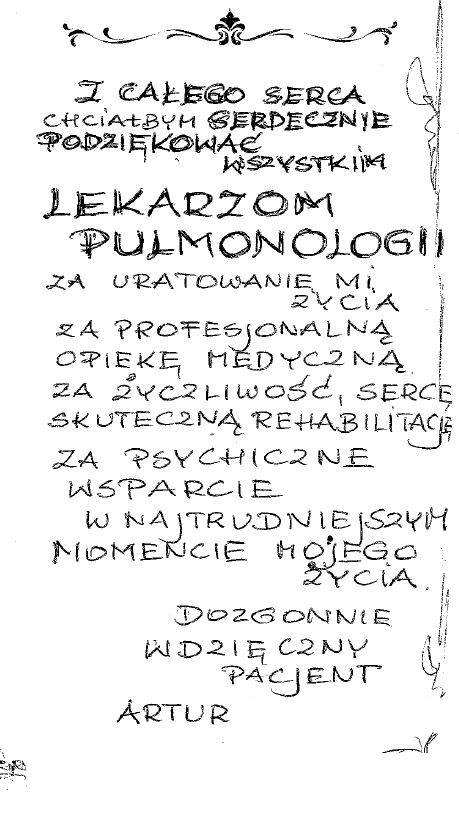 Z CAŁEGO SERCA
CHCIAŁBYM SERDECZNIE
PODZIĘKOWAĆ
WSZYSTKIM
LEKARZOM
PULMONOLOGII
ZA URATOWANIE MI
ŻYCIA
ZA PROFESJONALNĄ
OPIEKĘ MEDYCZNĄ
ZA ŻYCZLIWOŚĆ, SERCE
SKUTECZNĄ REHABILITACJĘ
ZA PSYCHICZNE
WSPARCIE
W NAJTRUDNIEJSZYM
MOMENCIE MOJEGO
ŻYCIA.
DOZGONNIE
WDZIĘCZNY
PACJENT
ARTUR